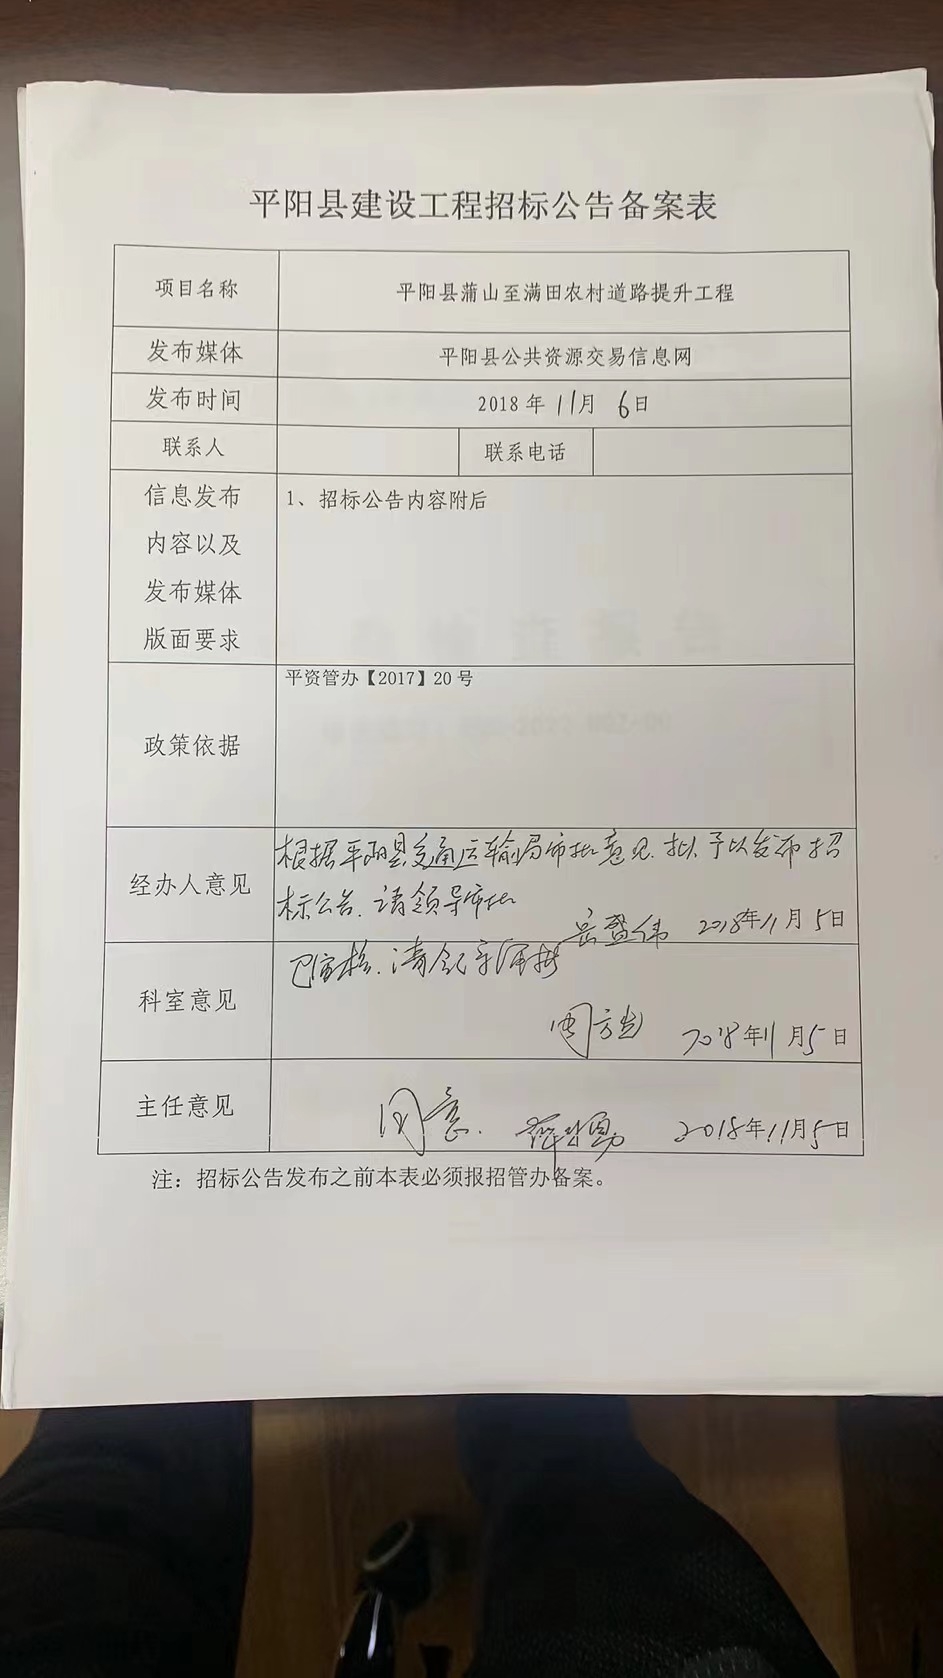 平阳县建设工程招标公告备案表
项目名称 平阳县蒲山至满田农村道路提升工程
发布媒体 平阳县公共资源交易信息网
发布时间 2018年11月6日
联系人 联系电话
信息发布
内容以及
发布媒体
版面要求
1、招标公告内容附后
政策依据
平资管办【2017】20号
经办人意见
根据平阳县交通运输局审批意见.拟予以发布招
标公告.请领导审批
2018年11月5日
科室意见
已审核.请领导审批
2018年11月5日
主任意见
同意.
2018年11月5日
注：招标公告发布之前本表必须报招管办备案。